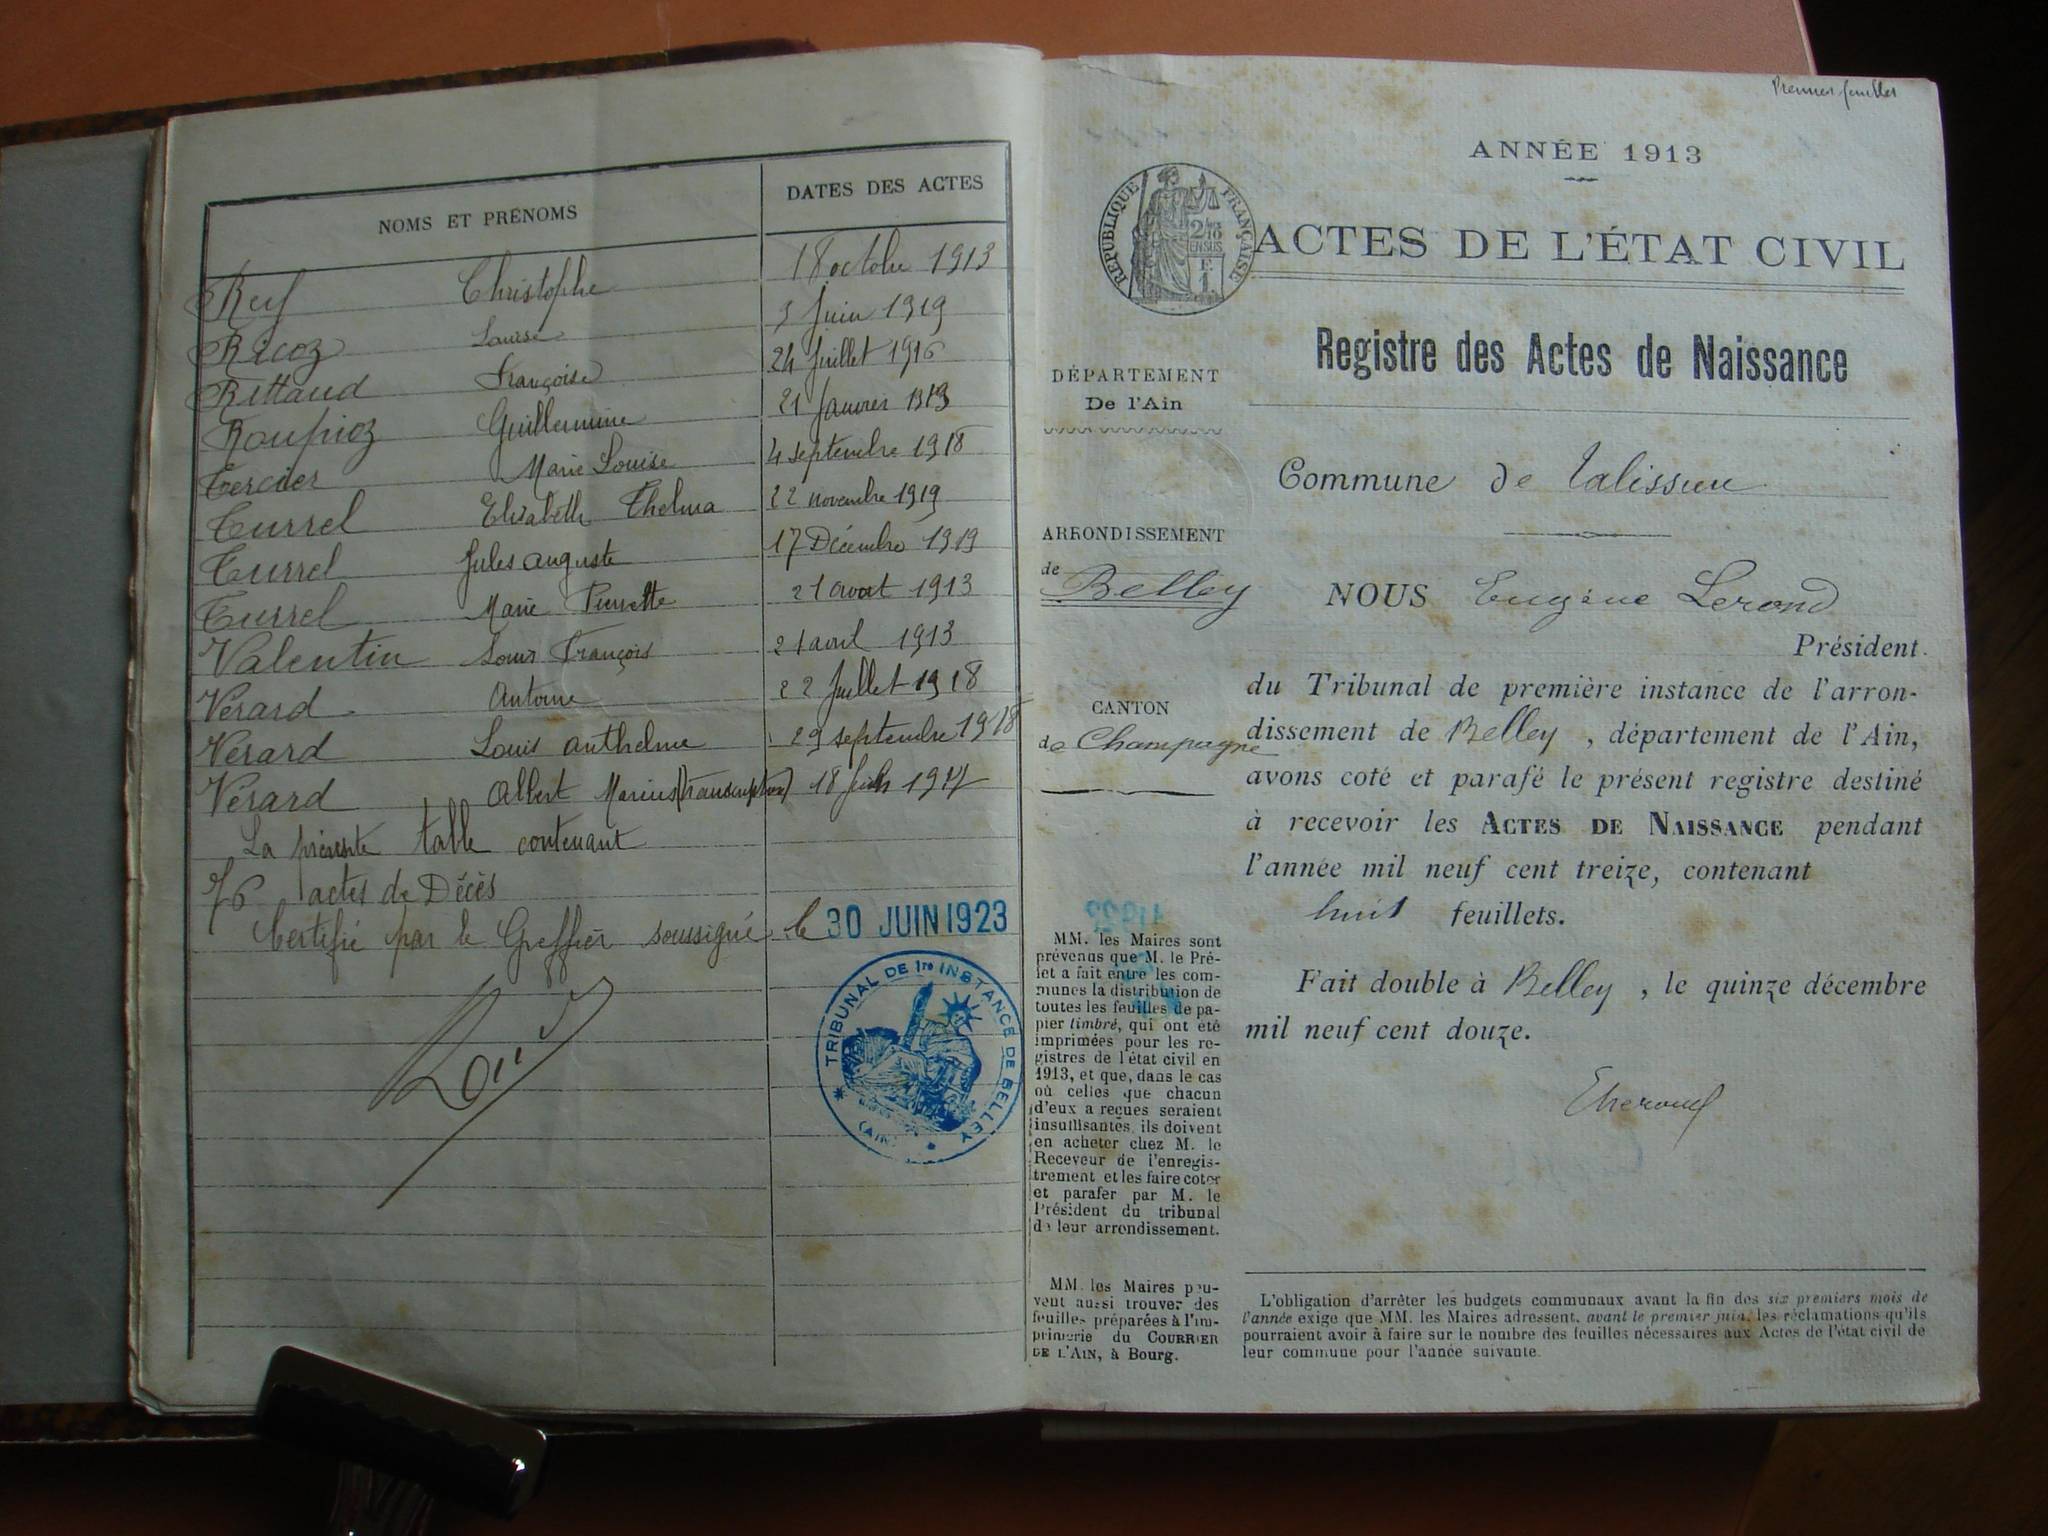 NOMS ET PRÉNOMS DATES DES ACTES
Rey Christophe 18 octobre 1913
Ricoz Louise 3 Juin 1919
Rittaud Françoise 24 Juillet 1916
Roupioz Guillermine 21 Janvier 1913
Tercier Marie Louise 4 septembre 1918
Turrel Elisabeth Thelma 22 novembre 1919
Turrel Jules auguste 17 Décembre 1919
Turrel Marie Pierrette 21 avril 1913
Valentin Louis François 21 avril 1913
Vérard Antoine 22 Juillet 1918
Vérard Louis anthelme 29 septembre 1918
Vérard Albert Marius (transcription) 18 1917
La présente table contenant
76 actes de Décès
Certifié par le Greffier soussigné, le 30 JUIN 1923
TRIBUNAL DE 1re INSTANCE DE BELLEY
(AIN)
Premier feuillet
ANNÉE 1913
RÉPUBLIQUE FRANÇAISE
2/10 EN SUS
ACTES DE L'ÉTAT CIVIL
Registre des Actes de Naissance
DÉPARTEMENT
De l'Ain
Commune de Talissieu
ARRONDISSEMENT
de Belley
CANTON
de Champagne
NOUS Eugène Lerond
Président
du Tribunal de première instance de l'arron-
dissement de Belley, département de l'Ain,
avons coté et parafé le présent registre destiné
à recevoir les ACTES DE NAISSANCE pendant
l'année mil neuf cent treize, contenant
huit feuillets.
Fait double à Belley, le quinze décembre
mil neuf cent douze.
MM. les Maires sont
prévenus que M. le Pré-
fet a fait entre les com-
munes la distribution de
toutes les feuilles de pa-
pier timbré, qui ont été
imprimées pour les re-
gistres de l'état civil en
1913, et que, dans le cas
où celles que chacun
d'eux a reçues seraient
insuffisantes, ils doivent
en acheter chez M. le
Receveur de l'enregis-
trement et les faire coter
et parafer par M. le
Président du tribunal
de leur arrondissement.
MM. les Maires peu-
vent aussi trouver des
feuilles préparées à l'im-
primerie du COURRIER
DE L'AIN, à Bourg.
L'obligation d'arrêter les budgets communaux avant la fin des six premiers mois de
l'année exige que MM. les Maires adressent, avant le premier juin, les réclamations qu'ils
pourraient avoir à faire sur le nombre des feuilles nécessaires aux Actes de l'état civil de
leur commune pour l'année suivante.